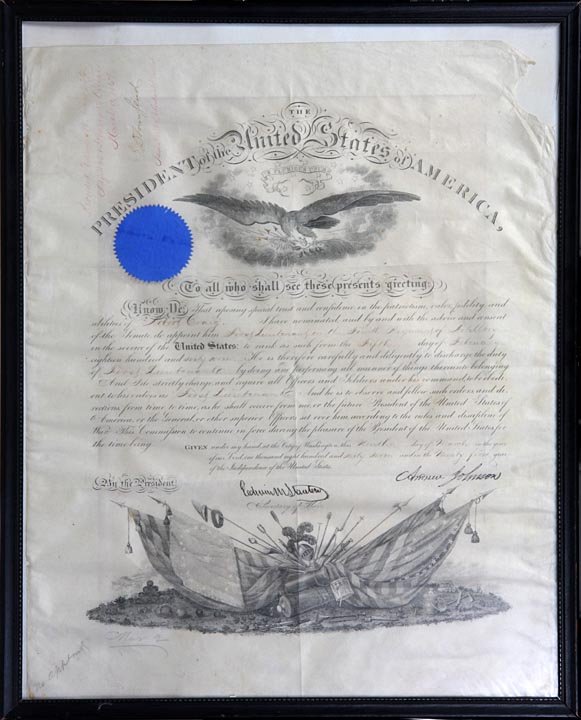 THE
PRESIDENT of the United States of AMERICA,
E PLURIBUS UNUM
To all who shall see these presents greeting:
Know Ye, That reposing special trust and confidence in the patriotism, valor, fidelity, and
abilities of Robert Craig I have nominated, and by and with the advice and consent
of the Senate, do appoint him First Lieutenant in the Regiment of Artillery
in the service of the United States: to rank as such from the day of February
eighteen hundred and sixty seven. He is therefore carefully and diligently to discharge the duty
of First Lieutenant by doing and performing all manner of things thereunto belonging.
And I do strictly charge, and require all Officers and Soldiers under his command, to be obedi-
ent to his orders as First Lieutenant. And he is to observe and follow such orders, and di-
rections, from time to time, as he shall receive from me, or the future President of the United States of
America, or the General, or other superior Officers set over him, according to the rules and discipline of
War. This Commission to continue in force during the pleasure of the President of the United States, for
the time being.
GIVEN under my hand, at the City of Washington, this day of March in the year
of our Lord, one thousand eight hundred and sixty seven and in the Ninety first year
of the Independence of the United States.
By the President,
Andrew Johnson
Edwin M Stanton
Secretary of War.